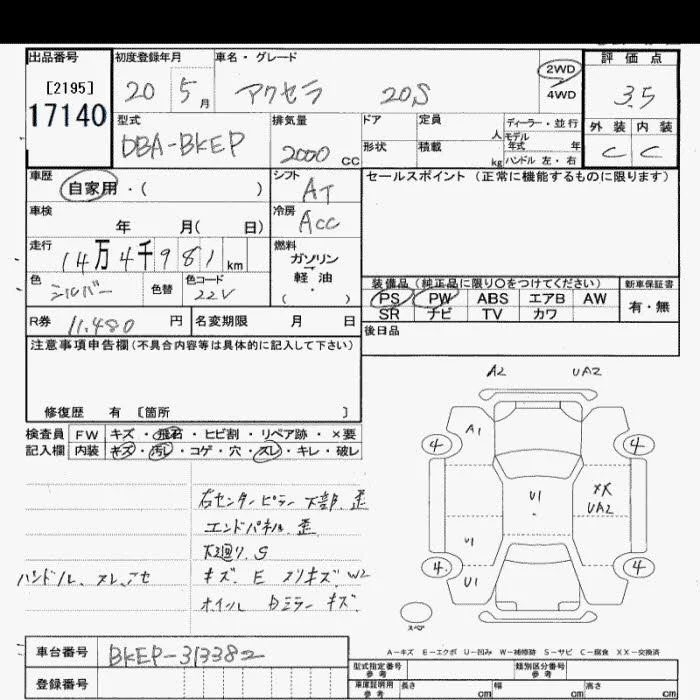 出品番号
[2195]
17140
初度登録年月
20 5 月
車名・グレード
アクセラ 20S
2WD
4WD
評価点
3.5
外装 内装
C C
型式
DBA-BKEP
排気量
2000 cc
ドア
形状
定員 人
積載 kg
ディーラー・並行
モデル
年式 年
ハンドル 左・右
車歴
自家用・( )
シフト
AT
セールスポイント (正常に機能するものに限ります)
車検
年 月( 日)
冷房
ACC
走行
14万4千981km
燃料
ガソリン
軽油
( )
色
シルバー
色替
色コード
22V
装備品(純正品に限り〇をつけてください)
新車保証書
PS PW ABS エアB AW
SR ナビ TV カワ
有・無
R券
11,480 円
名変期限 月 日
後日品
注意事項申告欄(不具合内容等は具体的に記入して下さい)
修復歴 有 [箇所 ]
検査員
記入欄
FW キズ・飛石・ヒビ割・リペア跡・×要
内装 キズ・汚レ・コゲ・穴・スレ・キレ・破レ
右センターピラー下部 歪
エンドパネル 歪
下廻り S
ハンドル、スレ、アセ
キズ、E スリキズ、W2
ホイール Dミラー キズ
A2 UA2
A1
4 4
U1
XX
UA2
U1
4 4
U1
スペア
A-キズ E-エクボ U-凹み W-補修跡 S-サビ C-腐食 XX-交換済
車台番号
BKEP-313382
登録番号
型式指定番号
参考
類別区分番号
参考
車庫証明用
参考
長さ cm 幅 cm 高さ cm